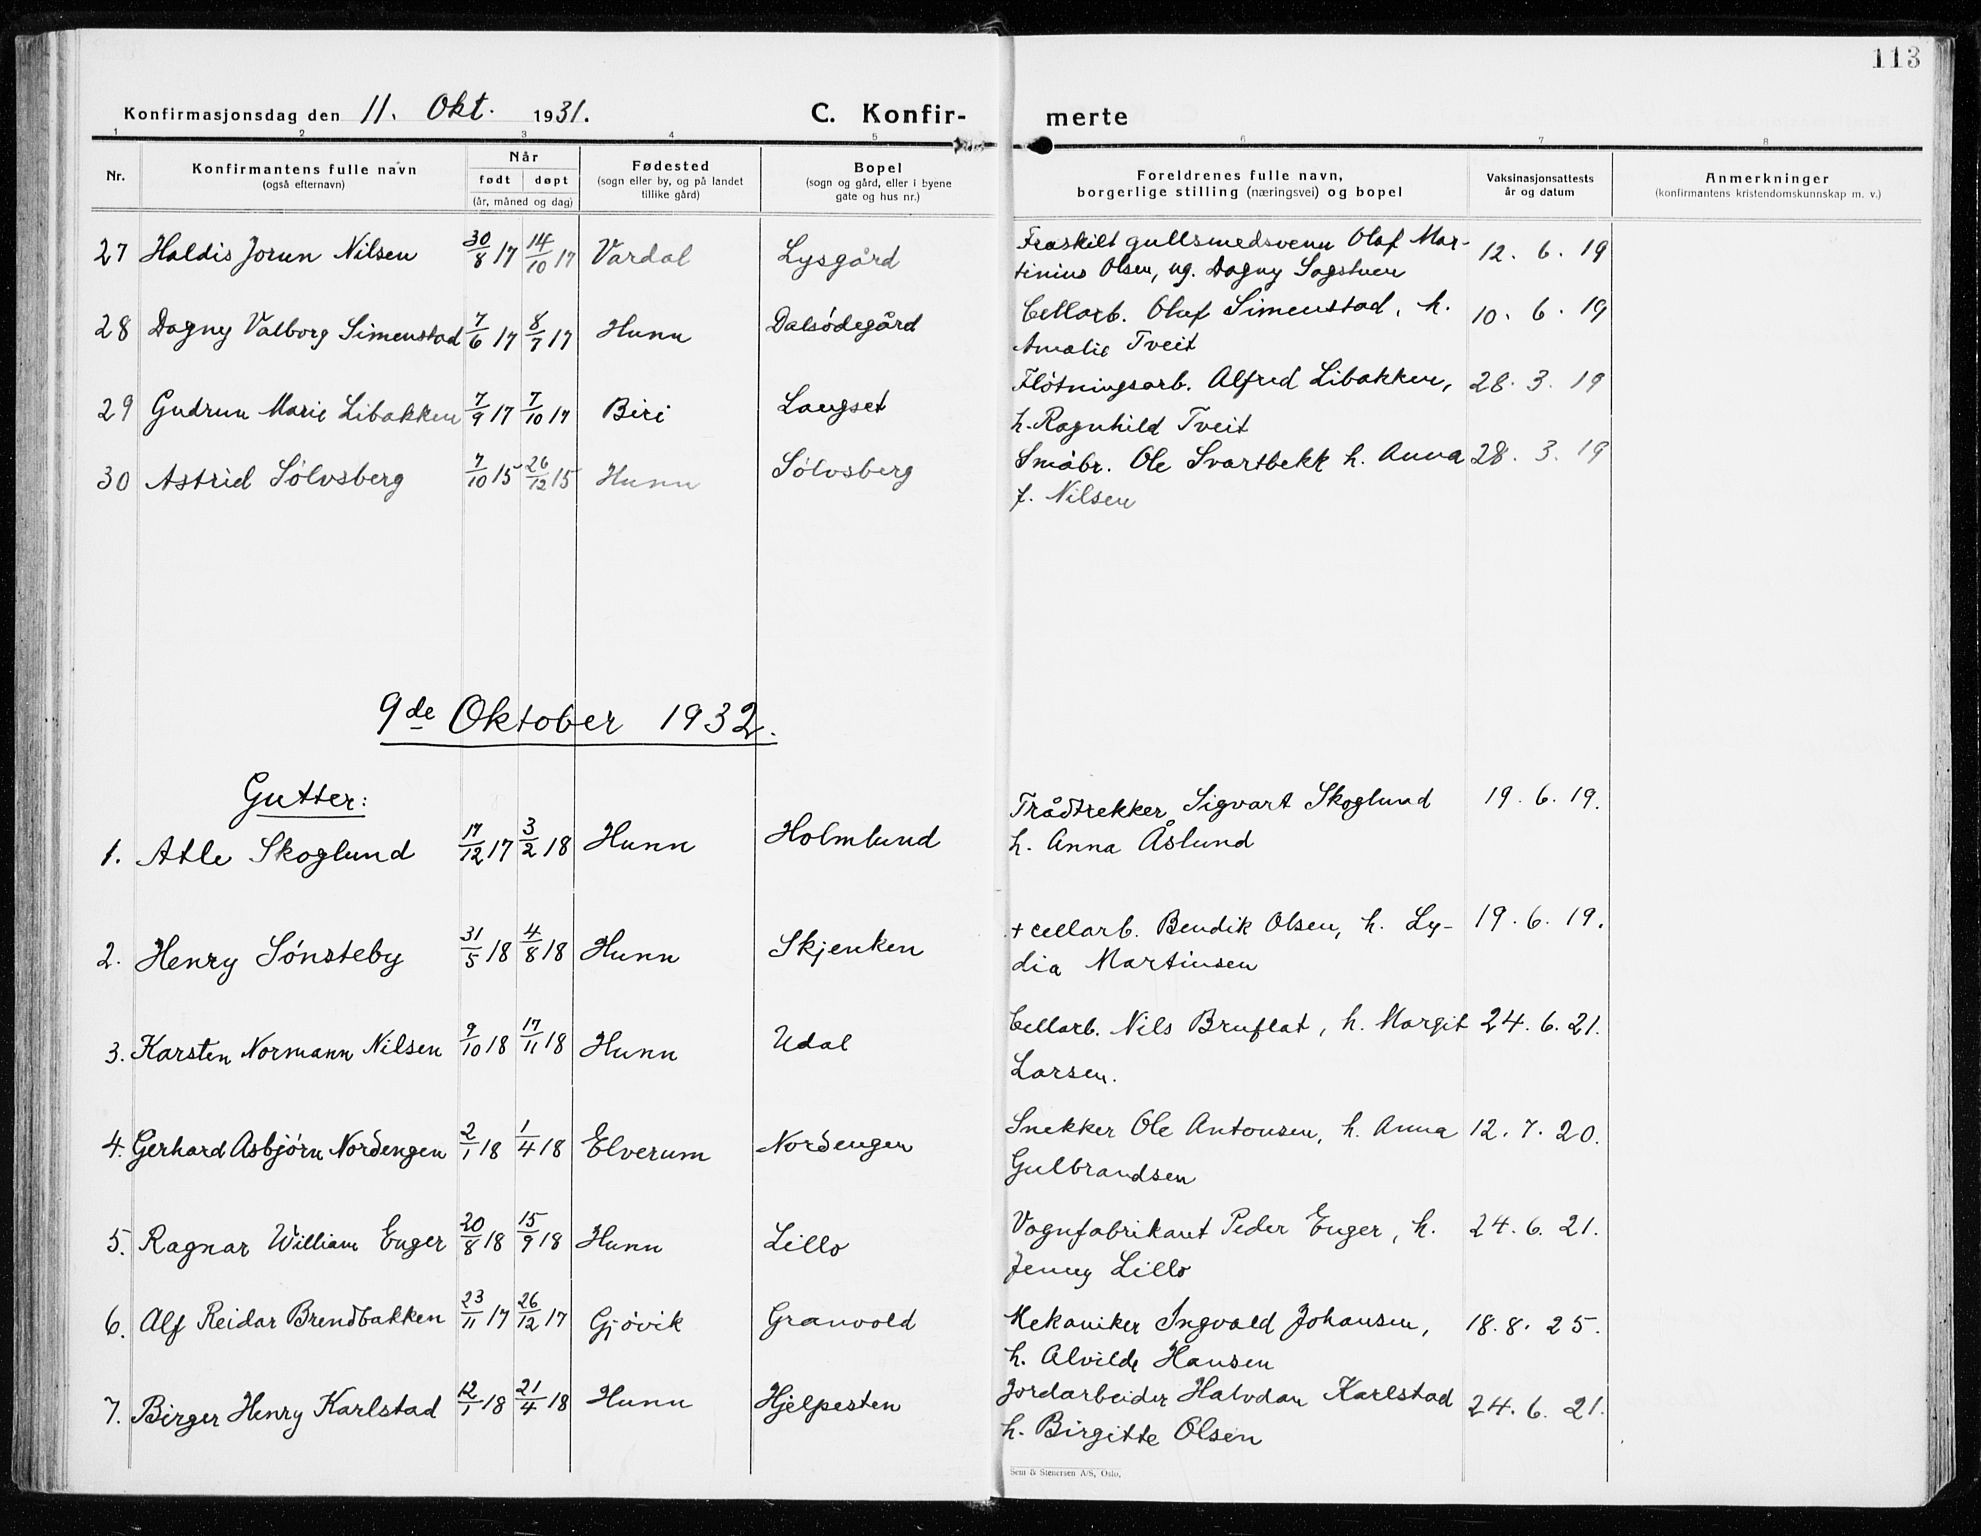 113
Konfirmasjonsdag den 11. Okt. 1931. C. Konfir- merte
1 2 3 4 5 6 7 8
Nr. Konfirmantens fulle navn (også efternavn) Når født døpt (år, måned og dag) Fødested (sogn eller by, og på landet tillike gård) Bopel (sogn og gård, eller i byene gate og hus nr.) Foreldrenes fulle navn, borgerlige stilling (næringsvei) og bopel Vaksinasjonsattests år og datum Anmerkninger (konfirmantens kristendomskunnskap m. v.)
27 Haldis Jorun Nilsen 30/8 17 14/10 17 Vardal Lysgård Fraskilt gullsmedsvenn Olaf Mar- 12. 6. 19
tinius Olsen, ug. Dagny Sagstuen
28 Dagny Valborg Simenstad 7/6 17 8/7 17 Hunn Dalsødegård Cellarb. Oluf Simenstad, h. 10. 6. 19
Amalie Tveit
29 Gudrun Marie Libakken 7/9 17 7/10 17 Biri Langset Fløtningsarb. Alfred Libakken, 28. 3. 19
h. Ragnhild Tveit
30 Astrid Sølvsberg 7/10 15 26/12 15 Hunn Sølvsberg Småbr. Ole Svartbekk h. Anna 28. 3. 19
f. Nilsen
9de Oktober 1932.
Gutter:
1. Atle Skoglund 17/12 17 3/2 18 Hunn Holmlund Trådtrekker Sigvart Skoglund 19. 6. 19.
h. Anna Åslund
2. Henry Sønsteby 31/5 18 4/8 18 Hunn Skjenken + cellarb. Bendik Olsen, h. Ly- 19. 6. 19.
dia Martinsen
3. Karsten Normann Nilsen 9/10 18 17/11 18 Hunn Udal Cellarb. Nils Bruflat, h. Margit 24. 6. 21.
Larsen.
4. Gerhard Asbjørn Nordengen 2/1 18 1/4 18 Elverum Nordengen Snekker Ole Antonsen, h. Anna 12. 7. 20.
Gulbrandsen
5. Ragnar William Enger 20/8 18 15/9 18 Hunn Lillo Vognfabrikant Peder Enger, h. 24. 6. 21.
Jenny Lillo
6. Alf Reidar Brendbakken 23/11 17 26/12 17 Gjøvik Granvold Mekaniker Ingvald Johansen, 18. 8. 25.
h. Alvilde Hansen
7. Birger Henry Karlstad 12/1 18 21/4 18 Hunn Hjelpesten Jordarbeider Halvdan Karlstad 24. 6. 21.
h. Birgitte Olsen
Sem & Stenersen A/S, Oslo.